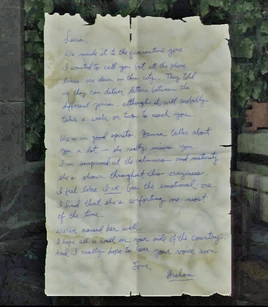 Laura,
We made it to the quarantine zone
I wanted to call you but all the phone
lines are down in this city. They told
us they can deliver letters between the
different zones, although it will probably
take a week or two to reach you.
We're in good spirits. talks about
you a lot - she really misses you.
I'm surprised at the calmness and maturity
she's shown throughout this craziness.
I feel like I'm the emotional one
I find that she's comforting me most
of the time.
We've missed her well.
I hope all is well on your side of the country,
And I really hope to hear your voice soon.
Love,
Graham